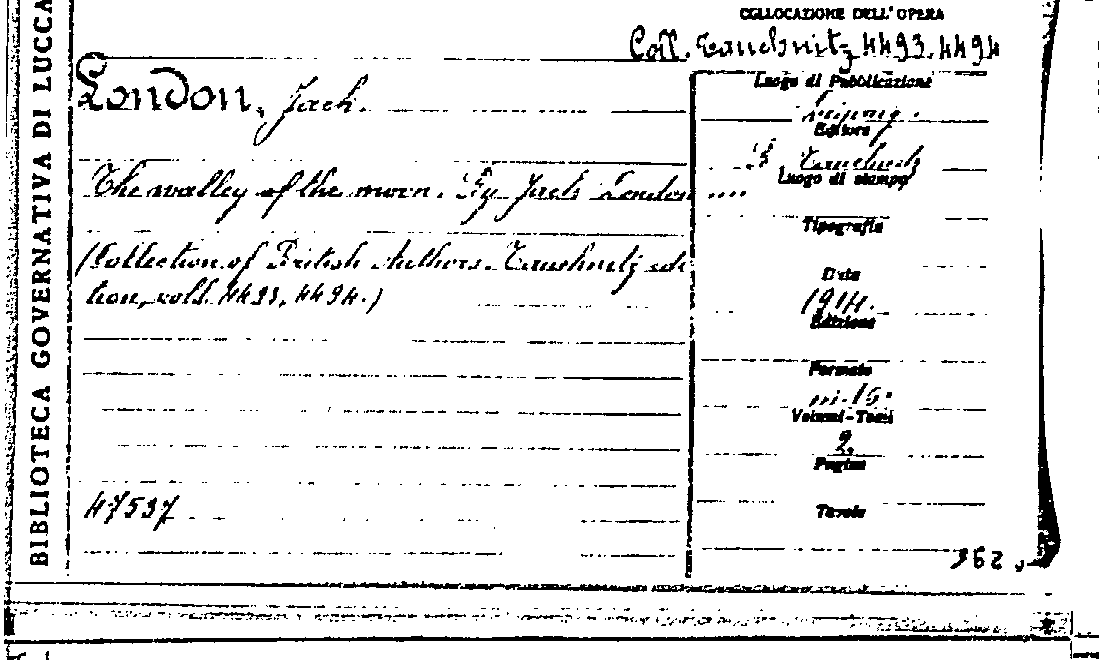 BIBLIOTECA GOVERNATIVA DI LUCCA
COLLOCAZIONE DELL'OPERA
Coll. Tauchnitz 4493.4494
London, Jack.
The walley of the moon. By Jack London ....
(Collection of British Authors. Tauchnitz edi-
tion, voll. 4493, 4494.)
47537
Luogo di Pubblicazione
Leipzig.
Editore
B. Tauchnitz
Luogo di stampa
Tipografia
Data
1914.
Edizione
Formato
in-16°
Volumi-Tomi
2.
Pagine
Tavole